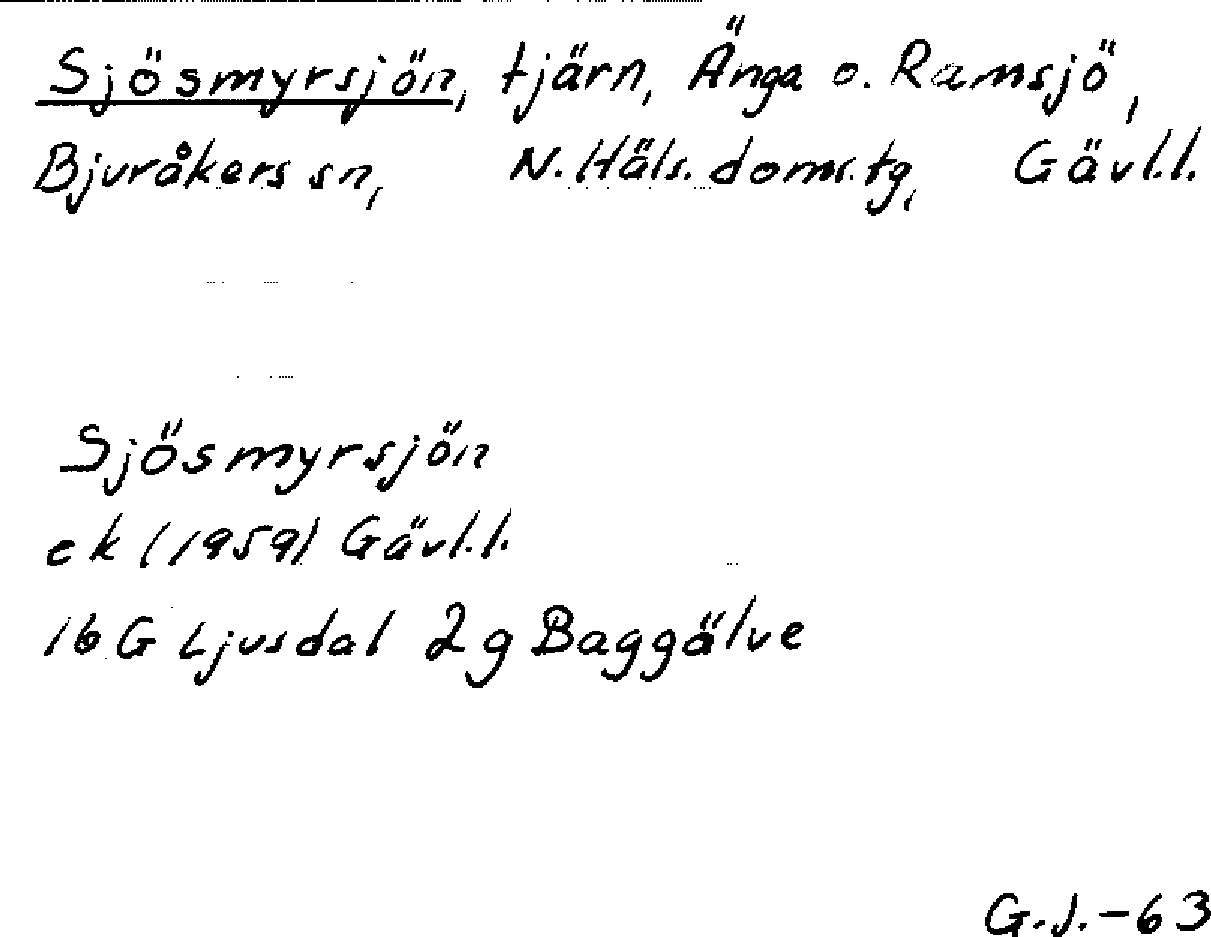 Sjösmyrsjön, tjärn, Änga o. Ramsjö,
Bjuråkers sn, N. Häls. doms.tg, Gävl.l.
Sjösmyrsjön
ek (1959) Gävl.l.
16 G Ljusdal 2g Baggälve
G.J.-63